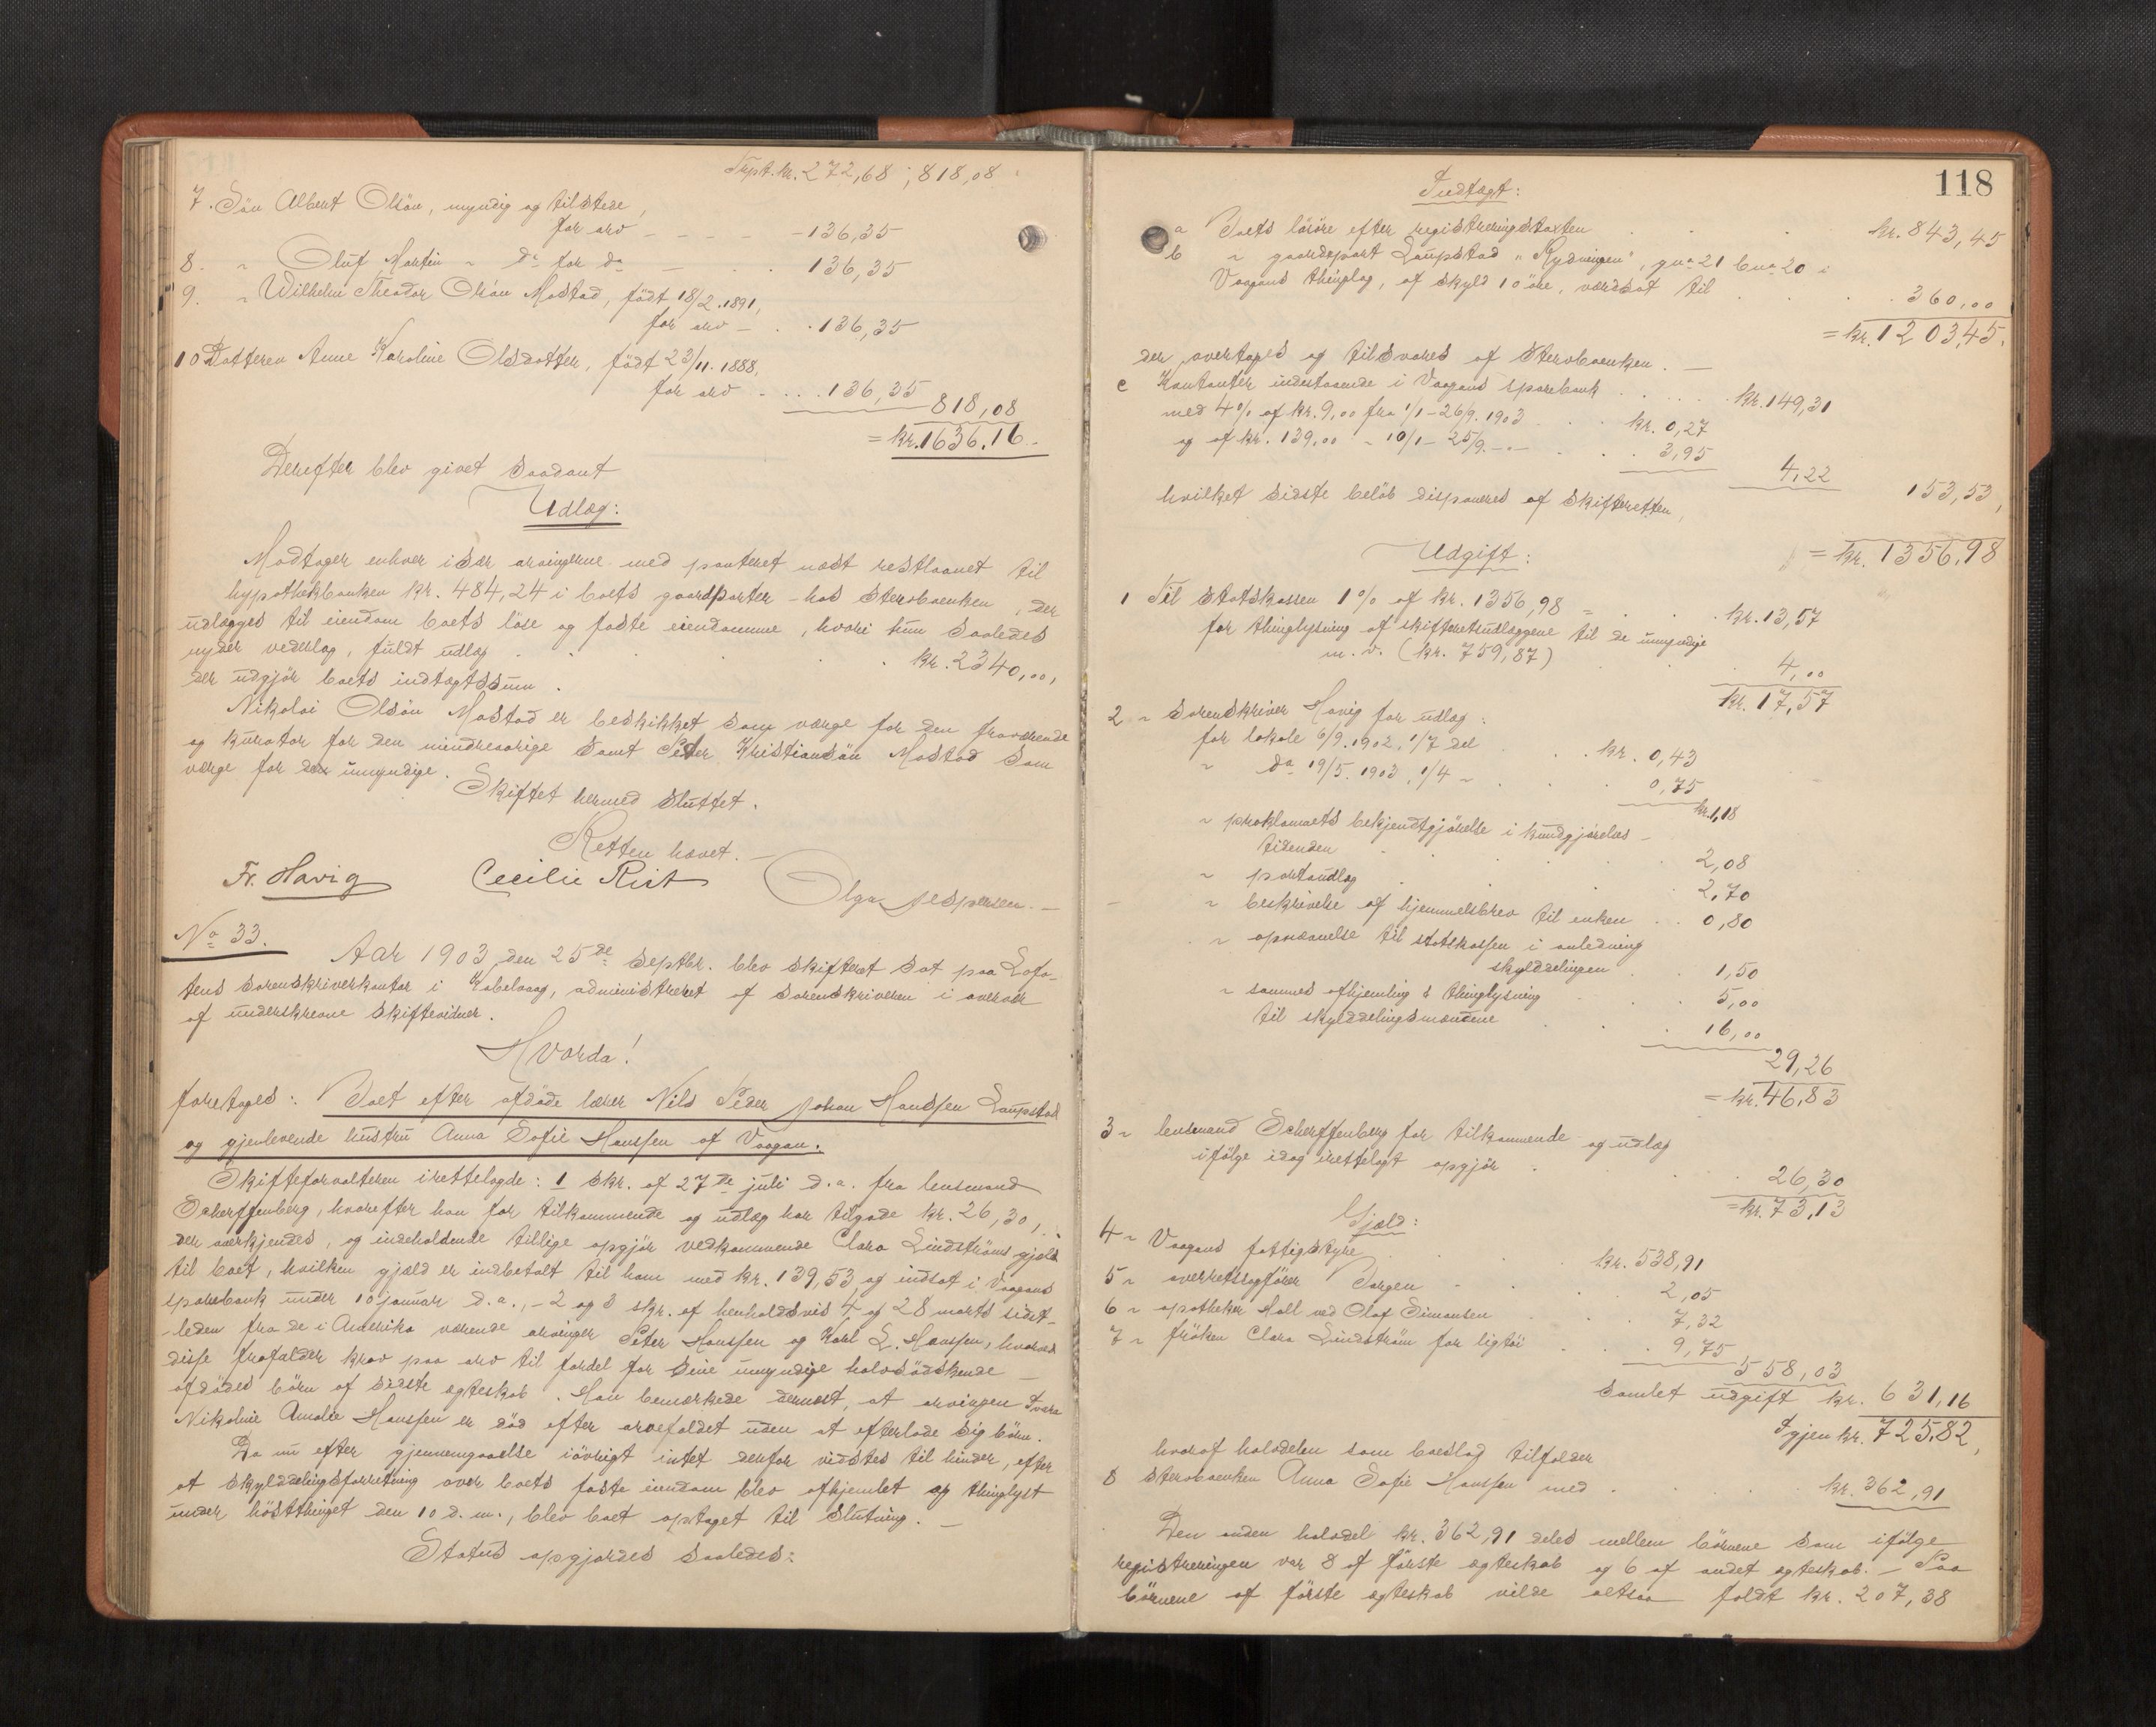 Trpt. kr. 272,68; 818,08
7. Søn Albert Olsøn, myndig og tilstede,
for arv - - - - - 136,35
8. " Oluf Martin " do for do - . . 136,35
9. " Wilhelm Theodor Olsøn Mostad, født 18/2. 1891,
for arv - . . 136,35
10 Datteren Anne Karoline Olsdatter, født 23/11. 1888,
for arv . . . . 136,35
818,08
= kr. 1636,16.
Derefter blev givet saadant
Udlæg:
Modtager enhver især arvingerne med panteret næst restlaanet til
hypothekbanken kr. 484,24 i boets gaardparter hos sterboenken, der
udlægges til eiendom boets løse og faste eiendomme, hvori hun saaledes
nyder vederlag, fuldt udlæg . . . . . kr. 2340,00,
der udgjør boets indtægtssum.
Nikolai Olsøn Mostad er beskikket som værge for den fraværende
og kurator for den mindreaarige samt Peder Kristiansøn Mostad som
værge for den umyndige.
Skiftet hermed sluttet.
Retten hævet. -
Fr. Havig Cecilie Rist Olga Jespersen. -
No 33.
Aar 1903 den 25de septbr. blev skifteret sat paa Lofo-
tens sorenskriverkontor i Kabelvaag, administreret af sorenskriveren i overvær
af underskrevne skiftevidner.
Hvorda!
foretoges: Boet efter afdøde lærer Nils Peder Johan Hanssen Laupstad
og gjenlevende hustru Anna Sofie Hanssen af Vaagan.
Skifteforvalteren irettelagde: 1 skr. af 27de juli d.a. fra lensmand
Scherffenberg, hvorefter han for tilkommende og udlæg har tilgode kr. 26,30,
der anerkjendes, og indeholdende tillige opgjør vedkommende Clara Lindstrøms gjæld
til boet, hvilken gjæld er indbetalt til ham med kr. 139,53 og indsat i Vaagans
sparebank under 10 januar d.a., - 2 og 3 skr. af henholdsvis 4 og 28 marts sidst-
leden fra de i Amerika værende arvinger Peter Hanssen og Karl L. Hanssen, hvorved
disse frafalder krav paa arv til fordel for sine umyndige halvsødskende -
afdødes børn af sidste ægteskab. Man bemærkede dernæst, at arvingen Tvara
Nikoline Amalie Hanssen er død efter arvefaldet uden at efterlade sig børn.
Da nu efter gjennemgaaelse iøvrigt intet derfor vidstes til hinder, efter
at skylddelingsforretning over boets faste eiendom blev afhjemlet og thinglyst
under høstthinget den 10 d.m., blev boet optaget til slutning. -
Status opgjordes saaledes:
118
Indtægt:
a Boets løsøre efter registreringstaxten . . . kr. 843,45
b " gaardepart Laupstad "Rydningen", gno 21 bno 20 i
Vaagans thinglag, af skyld 10 øre, værdsat til . . . 360,00
= kr. 1203,45.
der overtages og tilsvares af sterboenken. -
c Kontanter indestaaende i Vaagans sparebank . . . . . kr. 149,31
med 4% af kr. 9,00 fra 1/1 - 26/9. 1903 . . . kr. 0,27
og af kr. 139,00 " 10/1 - 25/9. - " - . . 3,95
4,22
153,53,
hvilket sidste beløb disponeres af skifteretten,
= kr. 1356,98
Udgift:
1 Til Statskassen 1% af kr. 1356,98 = . . . kr. 13,57
for thinglysning af skifteretsudlæggene til de umyndige
m.v. (kr. 759,87) . . 4,00
kr. 17,57
2 " sorenskriver Havig for udlæg:
for lokale 6/9. 1902, 1/7 del . . . kr. 0,43
" do 19/5. 1903, 1/4 " . . . 0,75
kr. 1,18
" proklamaets bekjendtgjørelse i kundgjørelses-
tidenden . . . . 2,08
" portoudlæg . . . 2,70
" beskrivelse af hjemmelsbrev til enken . . 0,80
" opnævnelse til statskassen i anledning
skylddelingen . . 1,50
" sammes afhjemling & thinglysning . . 5,00
til skylddelingsmændene . . . 16,00
29,26
= kr. 46,83
3 " lensmand Scherffenberg for tilkommende og udlæg
ifølge idag irettelagt opgjør . . . 26,30
= kr. 73,13
Gjæld:
4 " Vaagans fattigstyre . . . kr. 538,91
5 " overretssagfører Borgen . . . 2,05
6 " apotheker Holl ved Olaf Simonsen . . . 7,32
7 " frøken Clara Lindstrøm for ligtøi . . . 9,75
558,03
Samlet udgift kr. 631,16
Igjen kr. 725,82,
hvoraf halvdelen som boeslod tilfalder
8 sterboenken Anna Sofie Hanssen med . . . kr. 362,91
Den anden halvdel kr. 362,91 deles mellem børnene som ifølge
registreringen var 8 af første ægteskab og 6 af andet ægteskab. - Paa
børnene af første ægteskab vilde altsaa faldt kr. 207,38